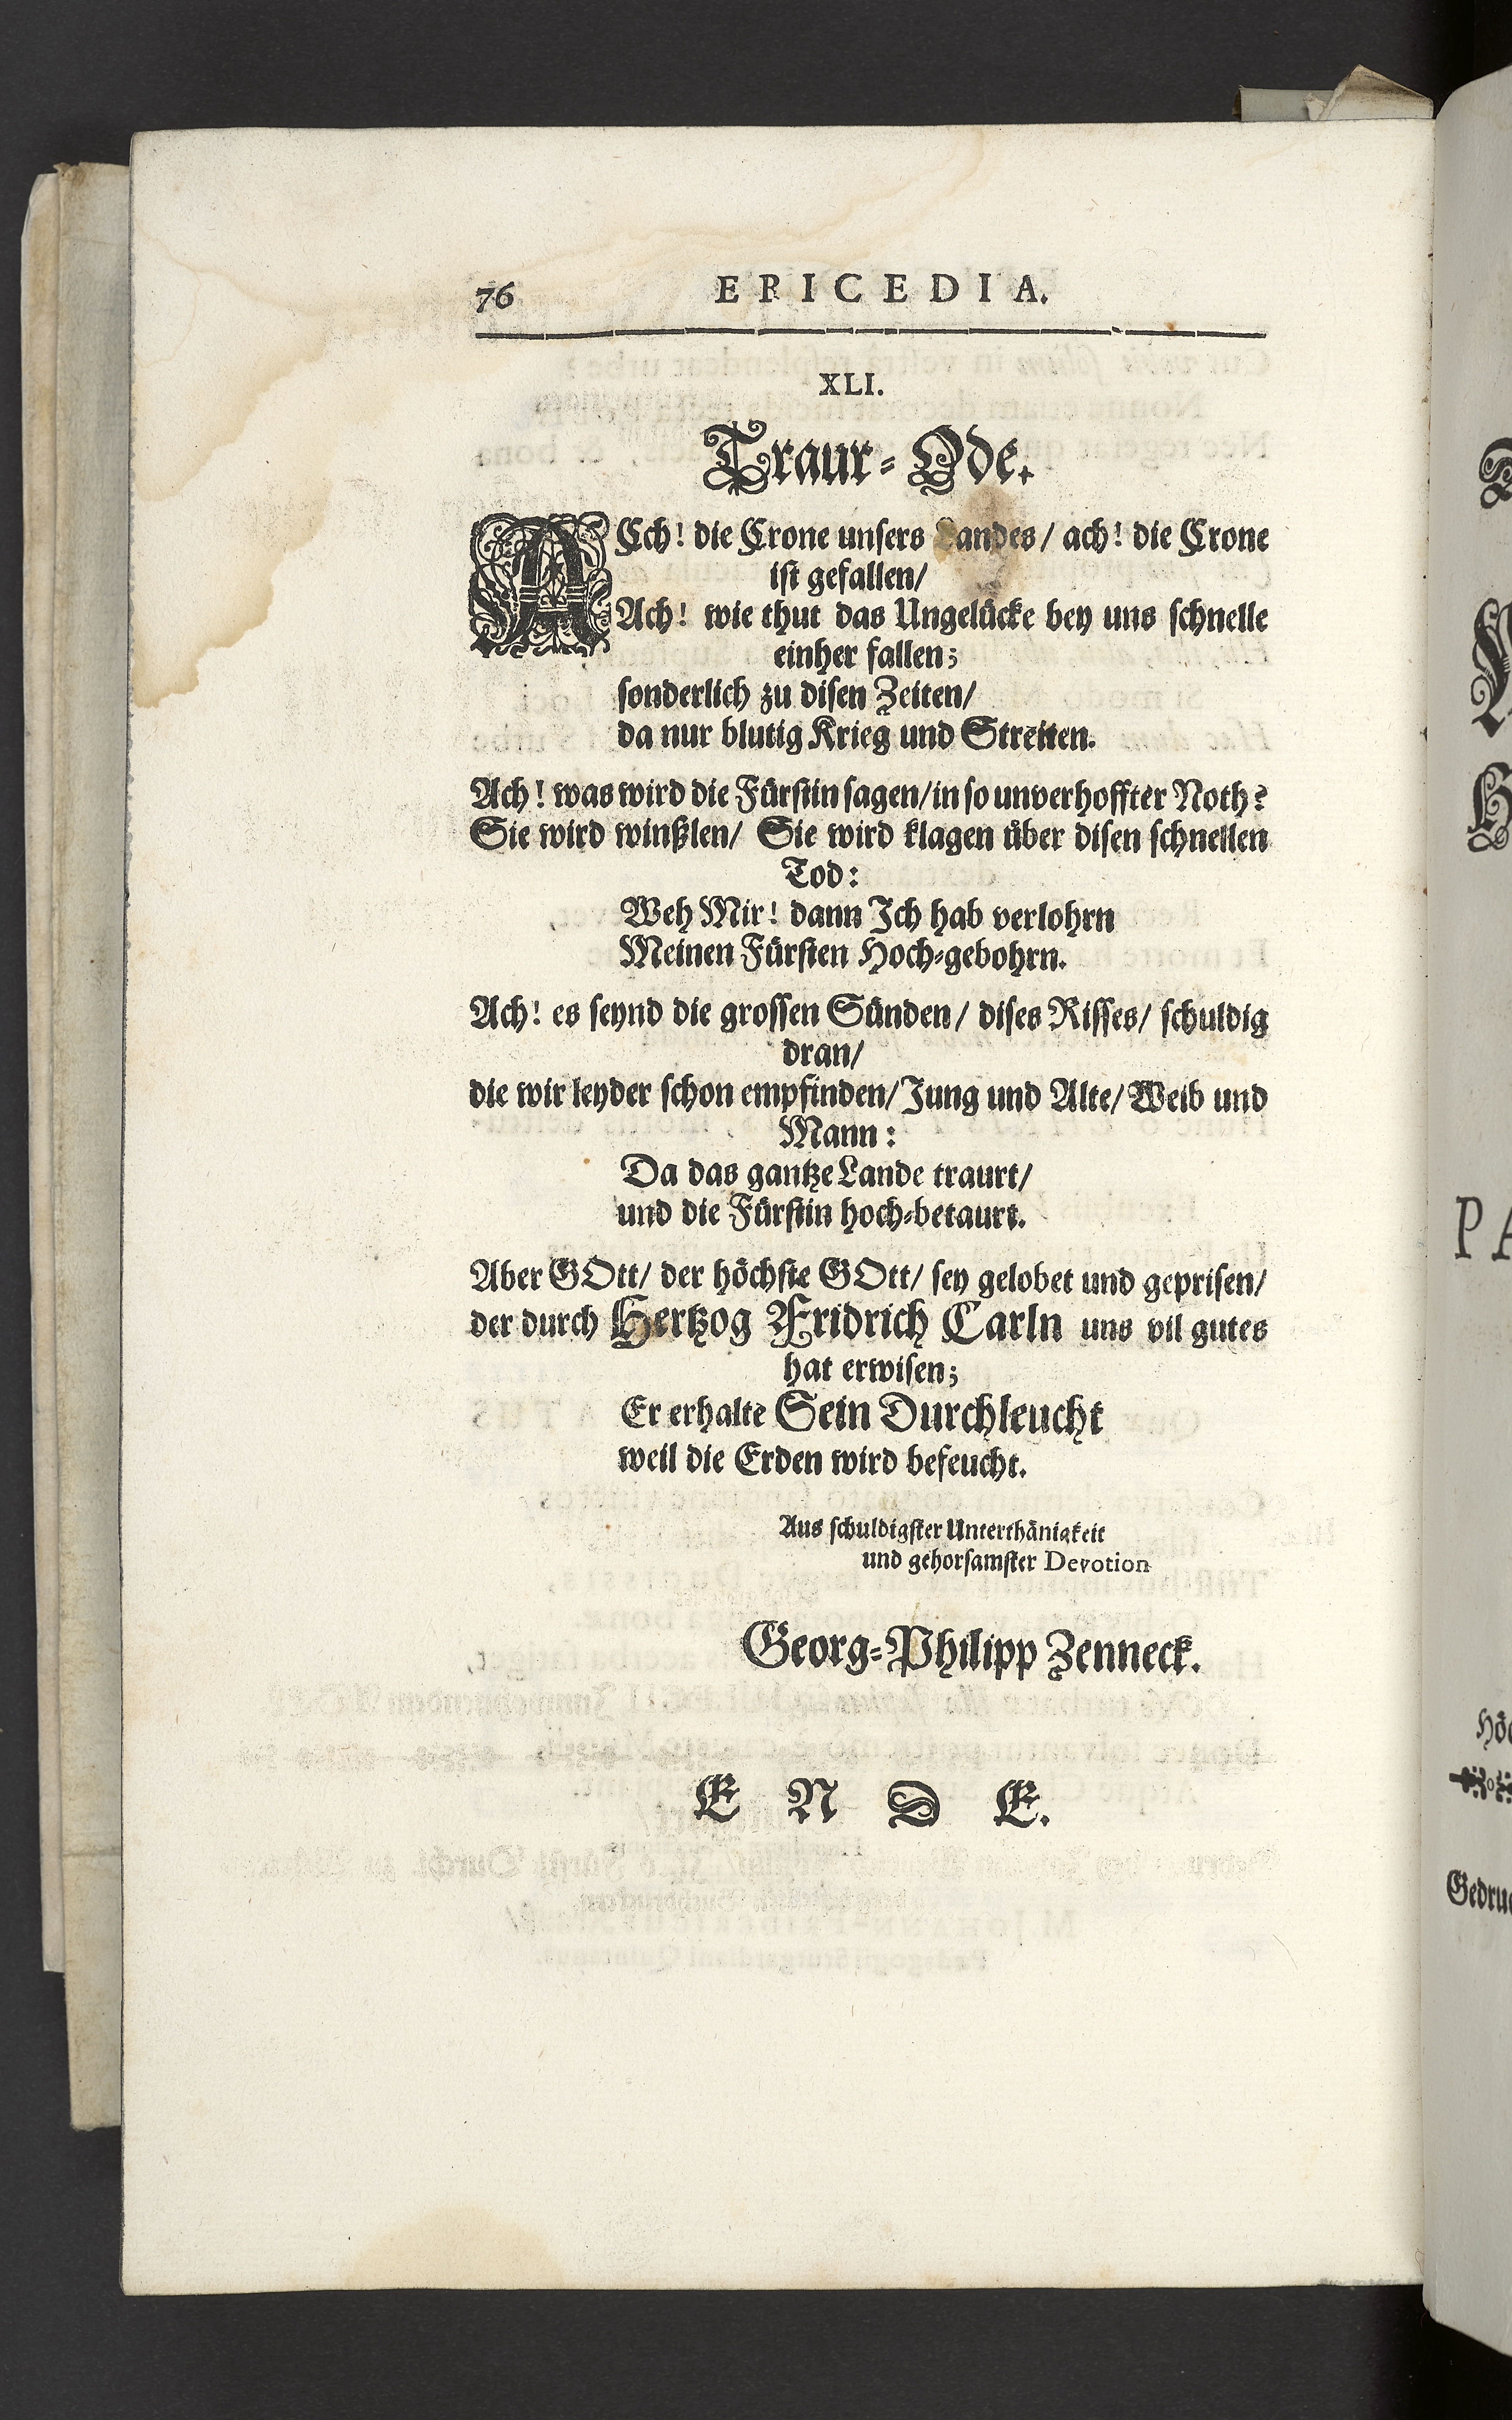 76 EPICEDIA.
XLI.
Traur-Ode.
ACch! die Crone unsers Landes / ach! die Crone
ist gefallen/
Ach! wie thut das Ungelücke bey uns schnelle
einher fallen;
sonderlich zu disen Zeiten/
da nur blutig Krieg und Streiten.
Ach! was wird die Fürstin sagen/ in so unverhoffter Noth?
Sie wird winßlen/ Sie wird klagen über disen schnellen
Tod:
Weh Mir! dann Ich hab verlohrn
Meinen Fürsten Hoch-gebohrn.
Ach! es seynd die grossen Sünden/ dises Risses/ schuldig
dran/
die wir leyder schon empfinden/ Jung und Alte/ Weib und
Mann:
Da das gantze Lande traurt/
und die Fürstin hoch-betaurt.
Aber GOtt/ der höchste GOtt/ sey gelobet und geprisen/
der durch Hertzog Fridrich Carln uns vil gutes
hat erwisen;
Er erhalte Sein Durchleucht
weil die Erden wird befeucht.
Aus schuldigster Unterthänigkeit
und gehorsamster Devotion
Georg-Philipp Zenneck.
E N D E.
PA
Gedru